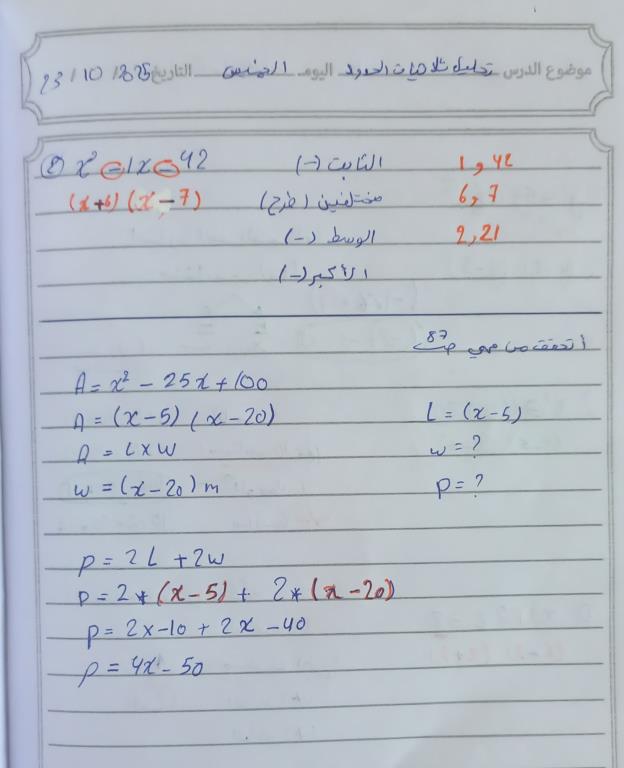 موضوع الدرس تحليل ثلاثيات الحدود اليوم الخميس التاريخ 23/10/2025
② x² - 1x - 42 الثابت (-) 1 و 42
(x+6) (x-7) مختلفين (طرح) 6 و 7
الوسط (-) 2 و 21
الأكبر (-)
أتحقق من فهمي صـ 87
A = x² - 25x + 100
A = (x-5) (x-20) L = (x-5)
A = L x W w = ?
w = (x-20) m p = ?
p = 2L + 2w
p = 2*(x-5) + 2*(x-20)
p = 2x-10 + 2x -40
p = 4x - 50